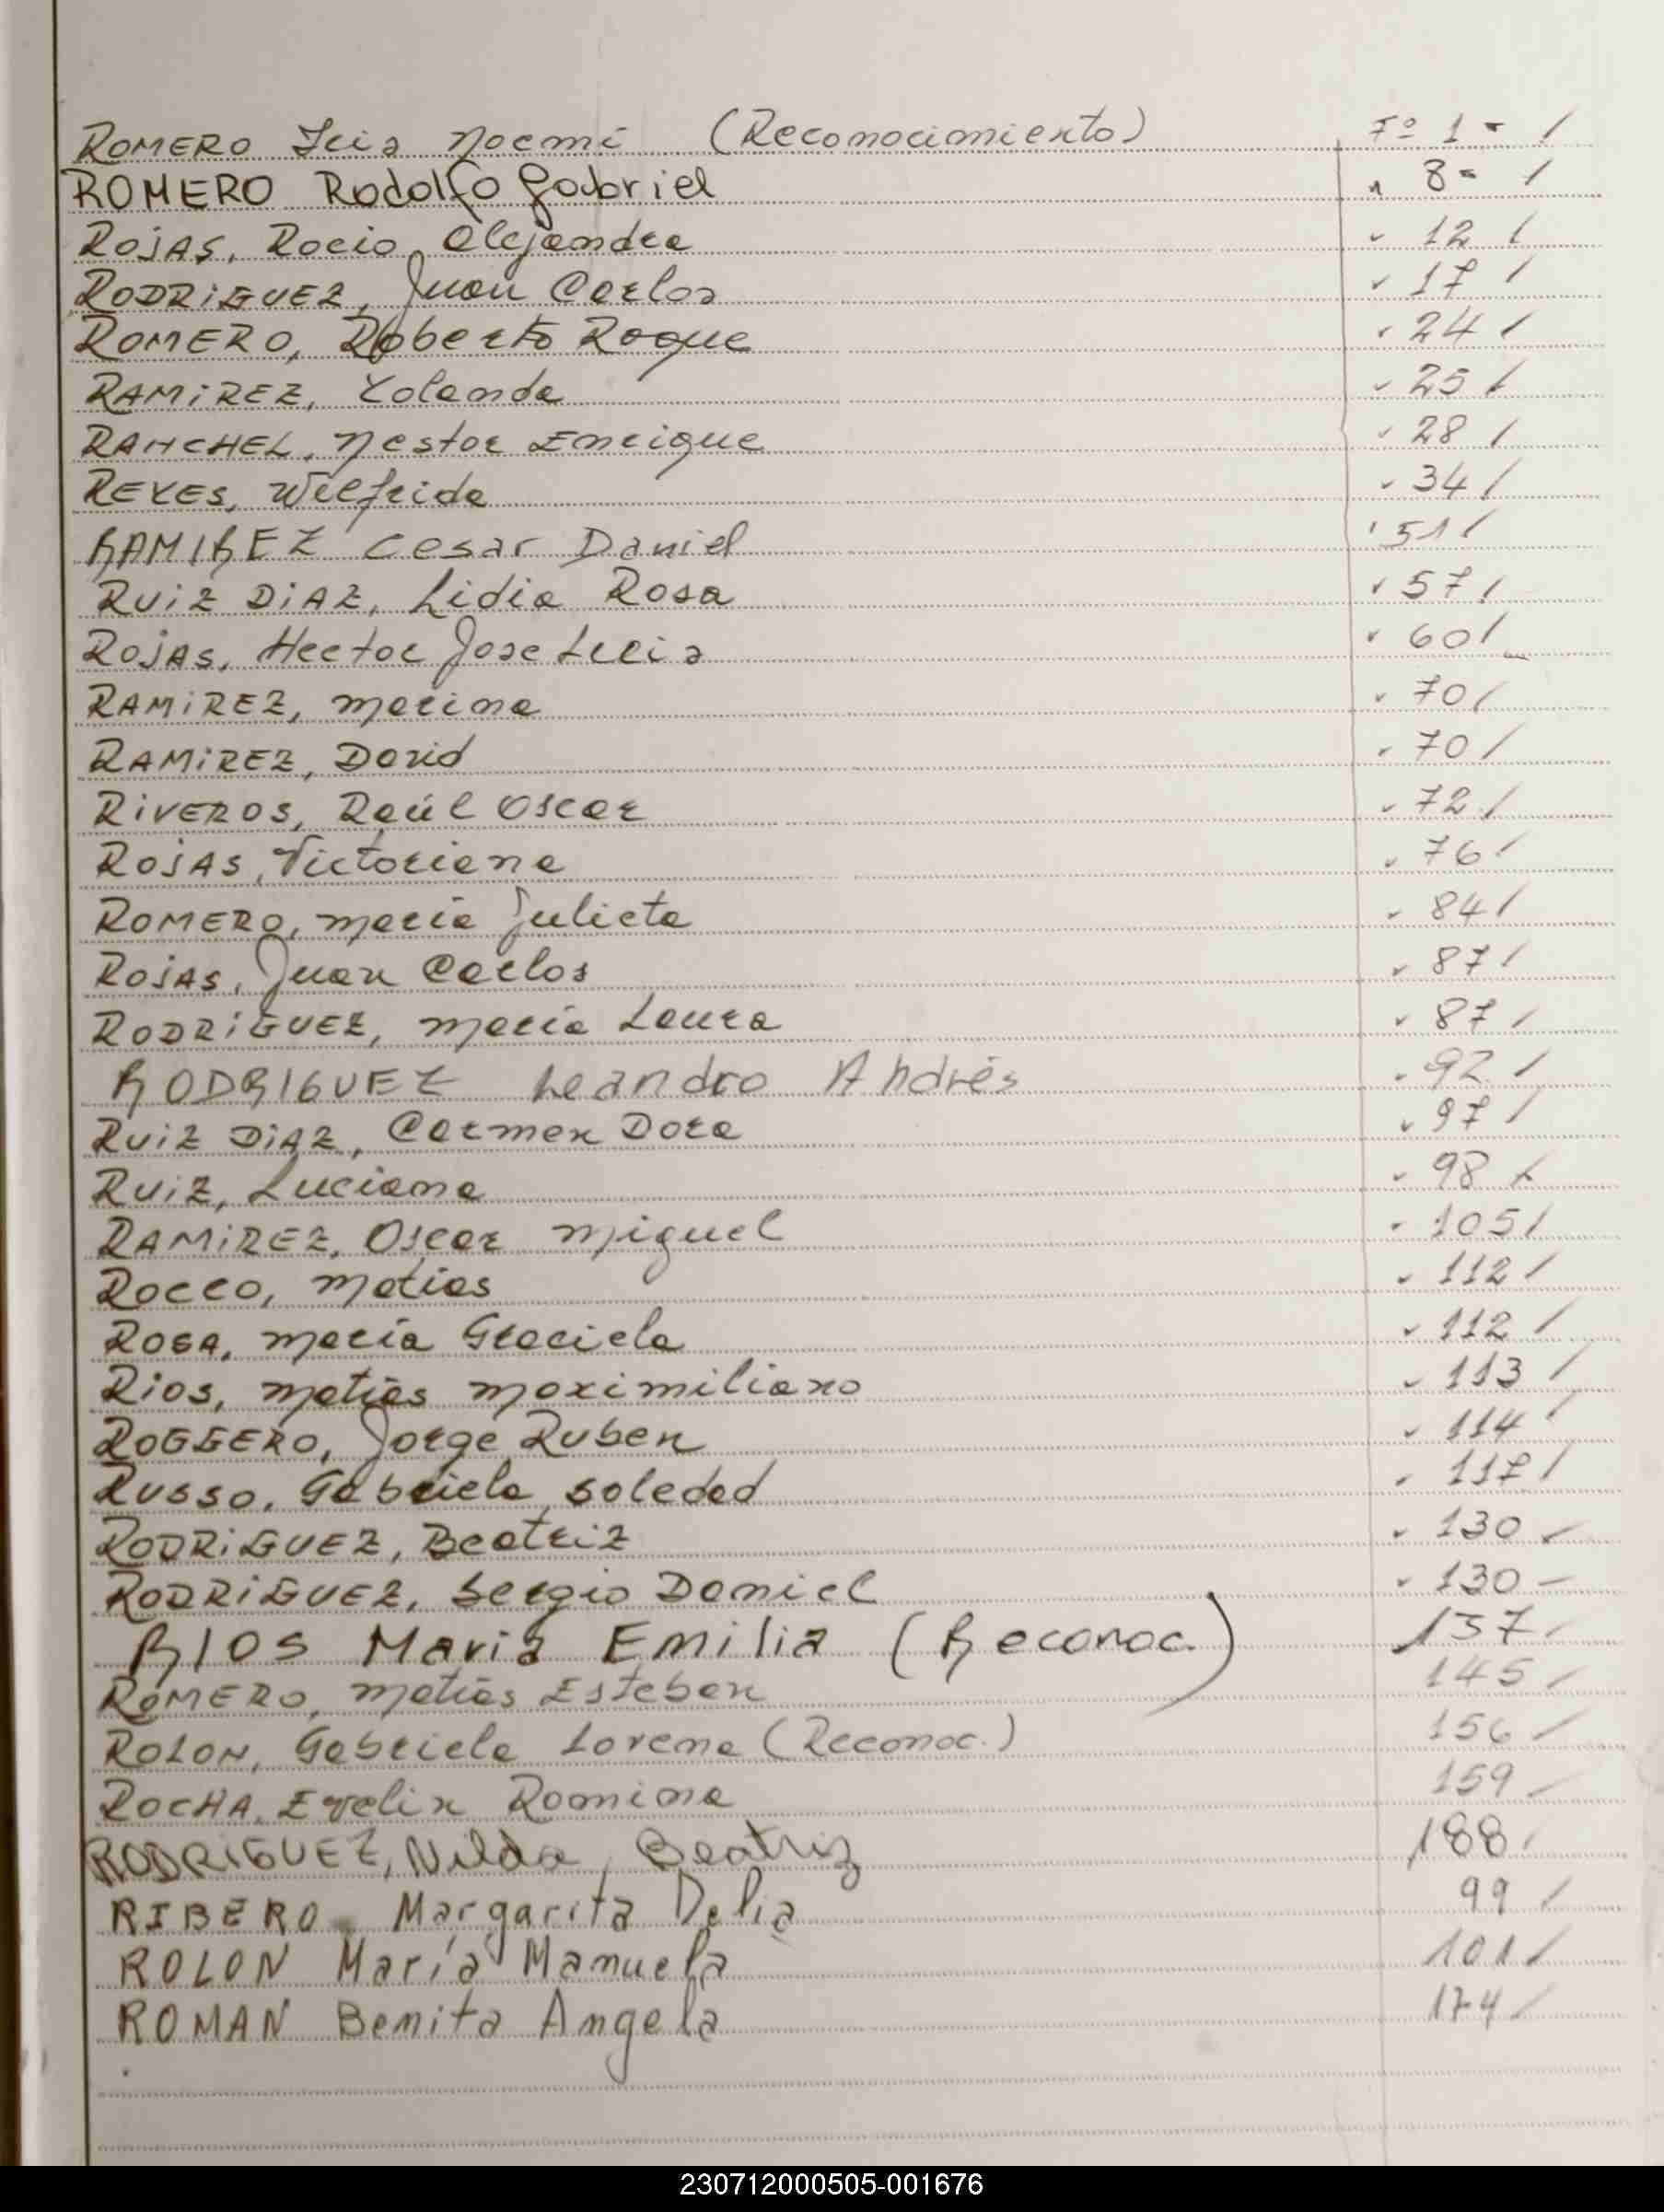 ROMERO Iris Noemí (Reconocimiento) Fº 1 - /
ROMERO Rodolfo Gabriel " 8 - /
ROJAS, Rocio Alejandra " 12 /
RODRIGUEZ, Juan Carlos " 17 /
ROMERO, Roberto Roque " 24 /
RAMIREZ, Yolanda " 25 /
RAMCHEL, Nestor Enrique " 28 /
REYES, Wilfrida " 34 /
RAMIREZ Cesar Daniel " 51 /
RUIZ DIAZ, Lidia Rosa " 57 /
ROJAS, Hector Jose Luis " 60 /
RAMIREZ, Marina " 70 /
RAMIREZ, David " 70 /
RIVEROS, Raúl Oscar " 72 /
ROJAS, Victoriana " 76 /
ROMERO, María Julieta " 84 /
ROJAS, Juan Carlos " 87 /
RODRIGUEZ, María Laura " 87 /
RODRIGUEZ Leandro Andrés " 92 /
RUIZ DIAZ, Carmen Dora " 97 /
RUIZ, Luciana " 98 /
RAMIREZ, Oscar Miguel " 105 /
ROCCO, Matias " 112 /
ROSA, María Graciela " 112 /
RIOS, Matías Maximiliano " 113 /
ROGGERO, Jorge Ruben " 114 /
RUSSO, Gabriela Soledad " 117 /
RODRIGUEZ, Beatriz " 130 /
RODRIGUEZ, Sergio Daniel " 130 -
RIOS María Emilia (Reconoc.) 137 /
ROMERO, Matías Esteban 145 /
ROLON, Gabriela Lorena (Reconoc.) 156 /
ROCHA, Evelin Romina 159 /
RODRIGUEZ, Nilda, Beatriz 188 /
RIBERO Margarita Delia 99 /
ROLON María Manuela 101 /
ROMAN Benita Angela 174 /
230712000505-001676